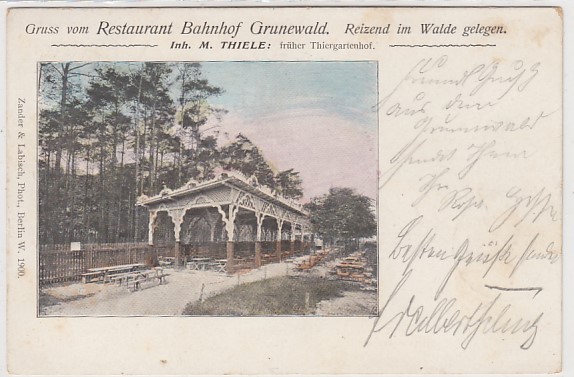 Gruss vom Restaurant Bahnhof Grunewald. Reizend im Walde gelegen.
Inh. M. THIELE: früher Thiergartenhof.
Zander & Labisch, Phot., Berlin W. 1900.
aus dem
Grunewald
sendet Ihnen
Ihr
Besten Gruß sendet